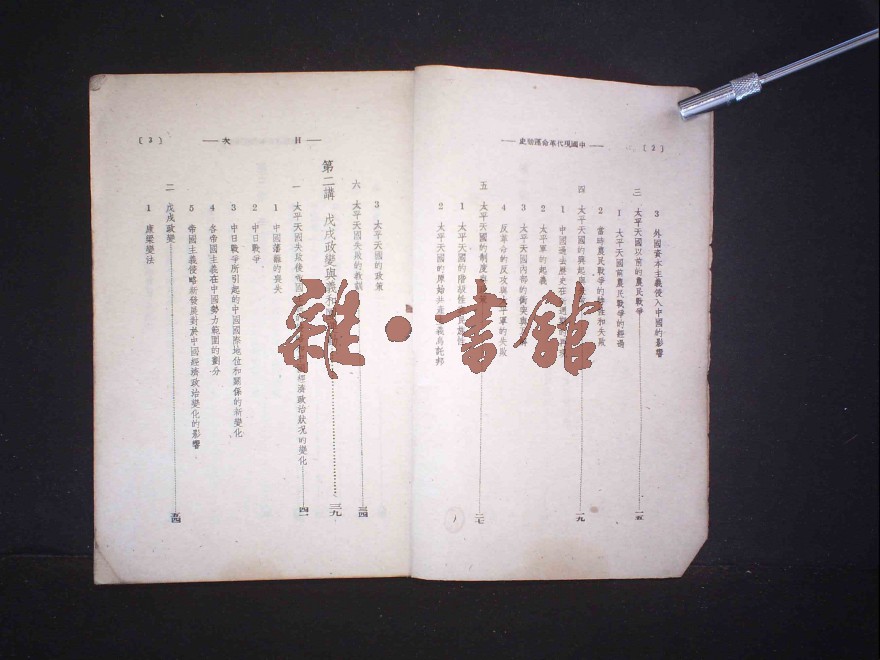 [2]
——中國現代革命運動史——
3 外國資本主義侵入中國的影響
三 太平天國以前的農民戰爭……一五
1 太平天國前農民戰爭的經過
2 當時農民戰爭的特性和失敗
四 太平天國的興起與……一九
1 中國過去歷史在
2 太平軍的起義
3 太平天國內部的衝突與
4 反革命的反攻與太平軍的失敗
五 太平天國的制度與……二七
1 太平天國的階級性
2 太平天國的原始共產主義烏託邦
——目 次——
[3]
3 太平天國的政策
六 太平天國失敗的教訓……三四
第二講 戊戌政變與義和團……三九
一 太平天國失敗後帝國 經濟政治狀況的變化……四一
1 中國藩籬的喪失
2 中日戰爭
3 中日戰爭所引起的中國國際地位和關係的新變化
4 各帝國主義在中國勢力範圍的劃分
5 帝國主義侵略新發展對於中國經濟政治變化的影響
二 戊戌政變……五四
1 康梁變法
雜·書館